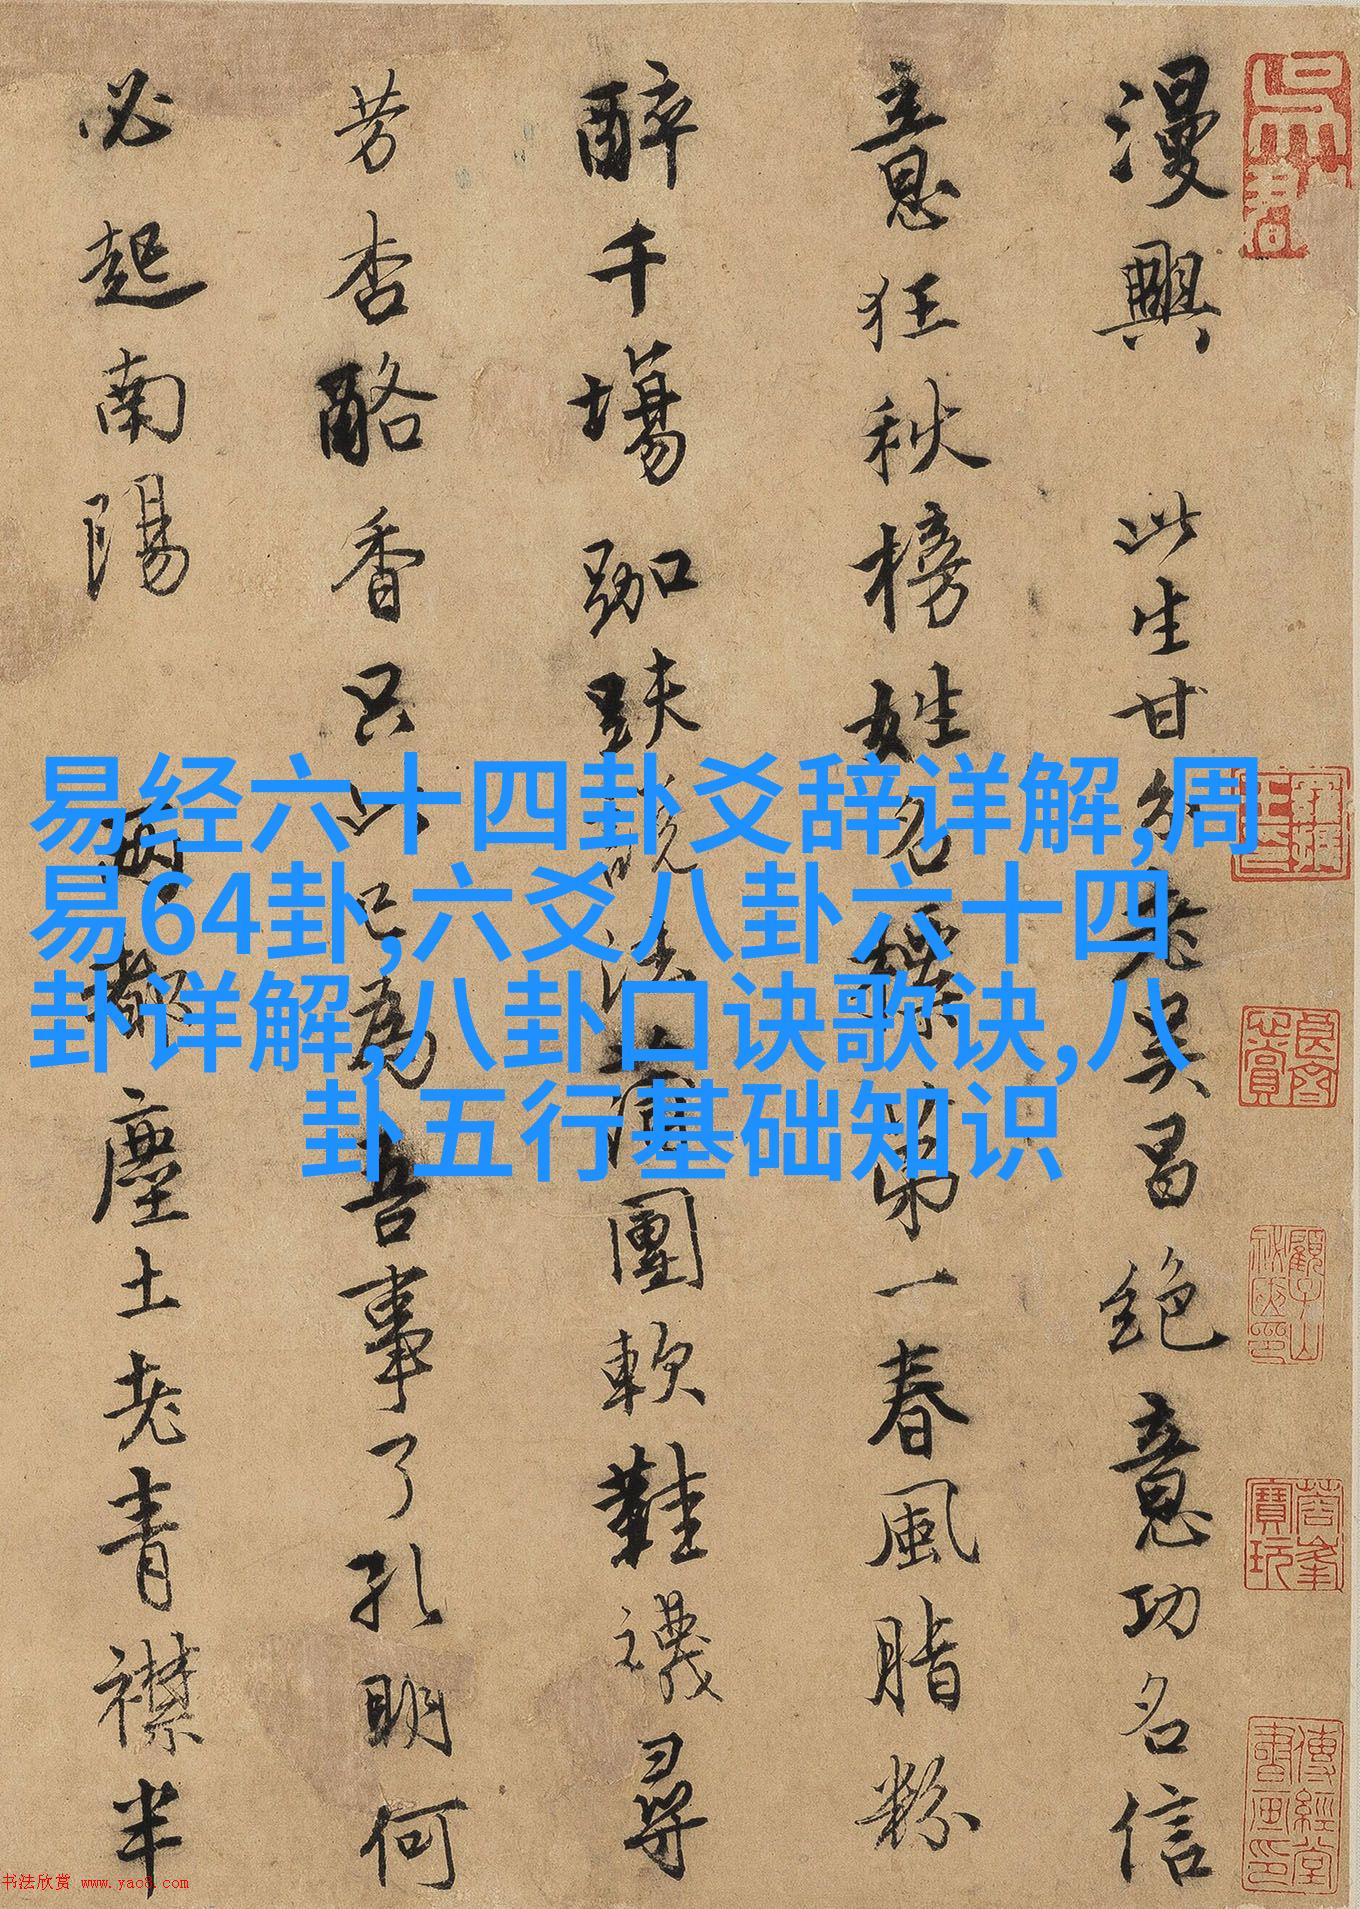 漫興 此生甘分老吴昌絶意功名信
意狂秋榜姓名標第一春風脂粉
醉千場跏趺説法蒲團軟鞋襪尋
芳杏酪香只此已為吾事了孔明何
必起南陽
两都塵土老青襟半
易经六十四卦爻辞详解,周
易64卦,六爻八卦六十四
卦详解,八卦口诀歌诀,八
卦五行基础知识
书法欣赏 www.yac8.com